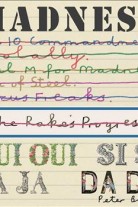 MADNESS
10 Commandm
olally.
l in for Madn
of Steel.
cus Freaks.
he Rake's Progress
UI OUI SI S
A JA DA D
Peter B